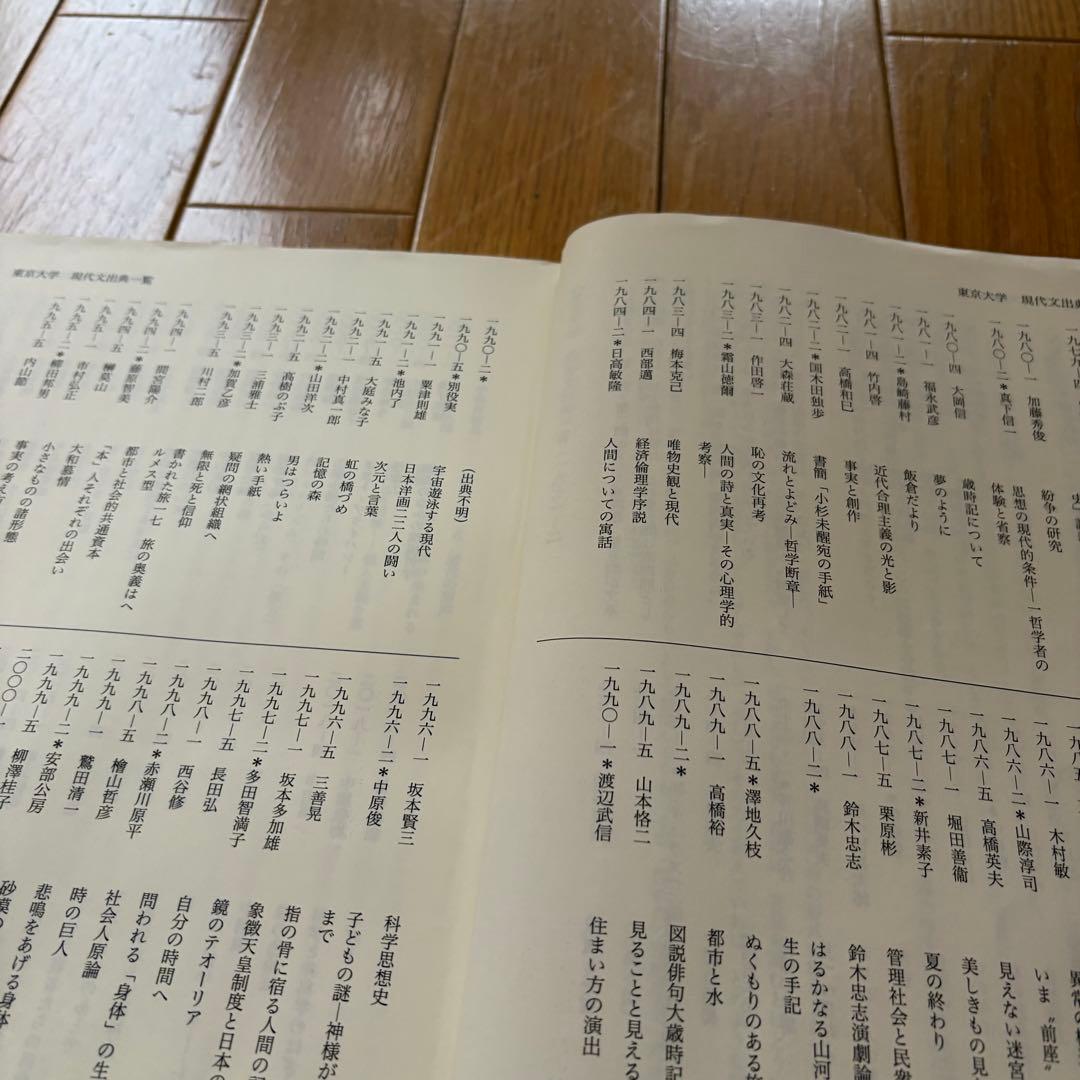 東京大学　現代文出典
一九八〇―一　加藤秀俊　紛争の研究
一九八〇―二＊真下信一　思想の現代的条件―一哲学者の
体験と省察
一九八〇―四　大岡信　歳時記について
一九八一―一　福永武彦　夢のように
一九八一―二＊島崎藤村　飯倉だより
一九八一―四　竹内啓　近代合理主義の光と影
一九八二―一　高橋和巳　事実と創作
一九八二―二＊国木田独歩　書簡「小杉未醒宛の手紙」
一九八二―四　大森荘蔵　流れとよどみ―哲学断章―
一九八三―一　作田啓一　恥の文化再考
一九八三―二＊霜山徳爾　人間の詩と真実―その心理学的
考察―
一九八三―四　梅本克己　唯物史観と現代
一九八四―一　西部邁　経済倫理学序説
一九八四―二＊日高敏隆　人間についての寓話
一九八六―一　木村敏　異常の
一九八六―二＊山際淳司　いま〝前座〟
一九八六―五　高橋英夫　見えない迷宮
一九八七―一　堀田善衞　美しきもの見
一九八七―二＊新井素子　夏の終わり
一九八七―五　栗原彬　管理社会と民衆
一九八八―一　鈴木忠志　鈴木忠志演劇論
一九八八―二＊　はるかなる山河
生の手記
一九八八―五＊澤地久枝　ぬくもりのある旅
一九八九―一　高橋裕　都市と水
一九八九―二＊　図説俳句大歳時記
一九八九―五　山本恪二　見ることと見える
一九九〇―一＊渡辺武信　住まい方の演出
東京大学　現代文出典一覧
一九九〇―二＊　（出典不明）
一九九〇―五＊別役実　宇宙遊泳する現代
一九九一―一　粟津則雄　日本洋画二二人の闘い
一九九一―二＊池内了　次元と言葉
一九九一―五　大庭みな子　虹の橋づめ
一九九二―一　中村真一郎　記憶の森
一九九二―二＊山田洋次　男はつらいよ
一九九二―五　高樹のぶ子　熱い手紙
一九九三―一　三浦雅士　疑問の網状組織へ
一九九三―二＊加賀乙彦　無限と死と信仰
一九九三―五　川村二郎　書かれた旅一七　旅の奥義はヘ
ルメス型
一九九四―一　間宮陽介　都市と社会的共通資本
一九九四―二＊藤原智美　「本」人それぞれの出会い
一九九四―五　榊莫山　大和慕情
一九九五―一　市村弘正　小さなものの諸形態
一九九五―二＊柳田邦男　事実の考え方
一九九五―五　内山節
一九九六―一　坂本賢三　科学思想史
一九九六―二＊中原俊　子どもの謎―神様が
まで
一九九六―五　三善晃　指の骨に宿る人間の
一九九七―一　坂本多加雄　象徴天皇制度と日本の
一九九七―二＊多田智満子　鏡のテオーリア
一九九七―五　長田弘　自分の時間へ
一九九八―一　西谷修　問われる「身体」の生
一九九八―二＊赤瀬川原平　社会人原論
一九九八―五　檜山哲彦　時の巨人
一九九九―一　鷲田清一　悲鳴をあげる身体
一九九九―二＊安部公房　砂漠の
一九九九―五　柳澤桂子
二〇〇〇―一